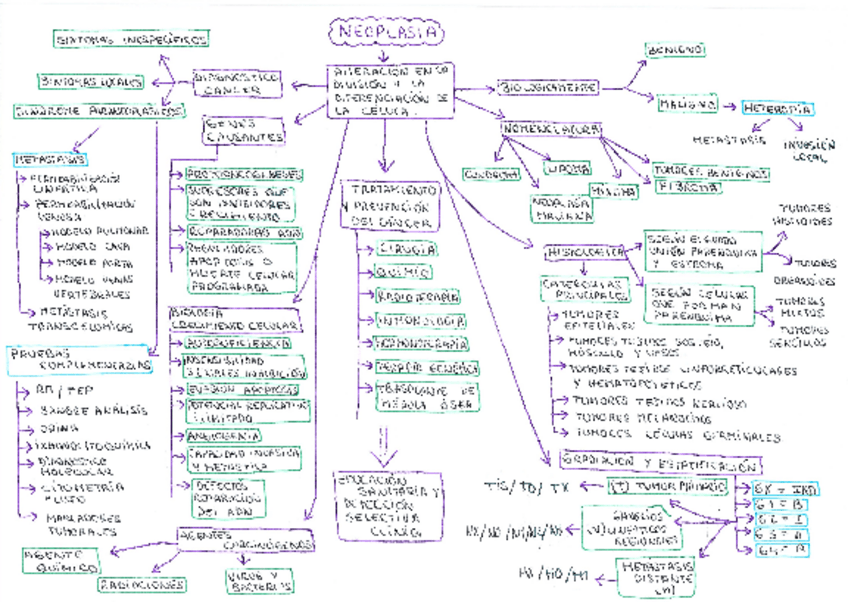 NEOPLASIA
ALTERACIÓN EN LA
DIVISIÓN Y LA
DIFERENCIACIÓN DE
LA CÉLULA.
SÍNTOMAS INESPECÍFICOS
SÍNTOMAS LOCALES
SÍNDROME PARANEOPLÁSICOS
DIAGNÓSTICO
CÁNCER
METASTASIS
PERMEABILIZACIÓN
LINFÁTICA
PERMEABILIZACIÓN
VENOSA
MODELO PULMONAR
MODELO CAVA
MODELO PORTA
MODELO VENAS
VERTEBRALES
METÁSTASIS
TRANSCELÓMICAS
PRUEBAS
COMPLEMENTARIAS
RM / PEP
SANGRE ANÁLISIS
ORINA
INMUNOHISTOQUÍMICA
DIAGNÓSTICO
MOLECULAR
CITOMETRÍA
FLUJO
MARCADORES
TUMORALES
GENES
CAUSANTES
PROTOONCOGENES
SUPRESORES QUE
SON INHIBIDORES
CRECIMIENTO
REPARADORAS ADN
REGULADORES
APOPTOSIS O
MUERTE CELULAR
PROGRAMADA
BIOLOGÍA
CRECIMIENTO CELULAR
AUTOSUFICIENCIA
INSENSIBILIDAD
SEÑALES INHIBICIÓN
EVASIÓN APOPTOSIS
POTENCIAL REPLICATIVO
ILIMITADO
ANGIOGENIA
CAPACIDAD INVASIVA
Y METASTICA
DEFECTOS
REPARACIÓN
DEL ADN
AGENTES
CARCINÓGENOS
AGENTE
QUÍMICO
RADIACIONES
VIRUS Y
BACTERIAS
TRATAMIENTO
Y PREVENCIÓN
DEL CÁNCER
CIRUGÍA
QUIMIO
RADIOTERAPIA
INMUNOLOGÍA
HORMONOTERAPIA
TERAPIA GENÉTICA
TRASPLANTE DE
MÉDULA ÓSEA
EDUCACIÓN
SANITARIA Y
DETECCIÓN
SELECTIVA
CLÍNICO
BIOLÓGICAMENTE
BENIGNO
MALIGNO
METASTASIS
INVASIÓN
LOCAL
NOMENCLATURA
CONDROMA
LIPOMA
NEOPLASIA
MALIGNA
TUMORES BENIGNOS
FIBROMA
HISTOLÓGICA
SEGÚN EL GRADO
UNIÓN PARÉNQUIMA
Y ESTROMA
TUMORES
HISTIOIDES
TUMORES
ORGANOIDES
SEGÚN CÉLULAS
QUE FORMAN
PARÉNQUIMA
TUMORES
MIXTOS
TUMORES
SENCILLOS
CATEGORÍAS
PRINCIPALES
TUMORES
EPITELIALES
TUMORES TEJIDOS
MÚSCULO Y VASOS
TUMORES TEJIDOS LINFORRETICULARES
Y HEMATOPOYÉTICOS
TUMORES TEJIDOS NERVIOSO
TUMORES MELANOCITOS
TUMORES CÉLULAS GERMINALES
GRADACIÓN Y ESTATIFICACIÓN
TIS/ TO/ TX
(T) TUMOR PRIMARIO
GANGLIOS
(N) LINFÁTICOS
REGIONALES
METASTASIS
DISTANTE
(M)
MX/MO/M1
GX = IND
G1 = B
G2 = I
G3 = A
G4 = A